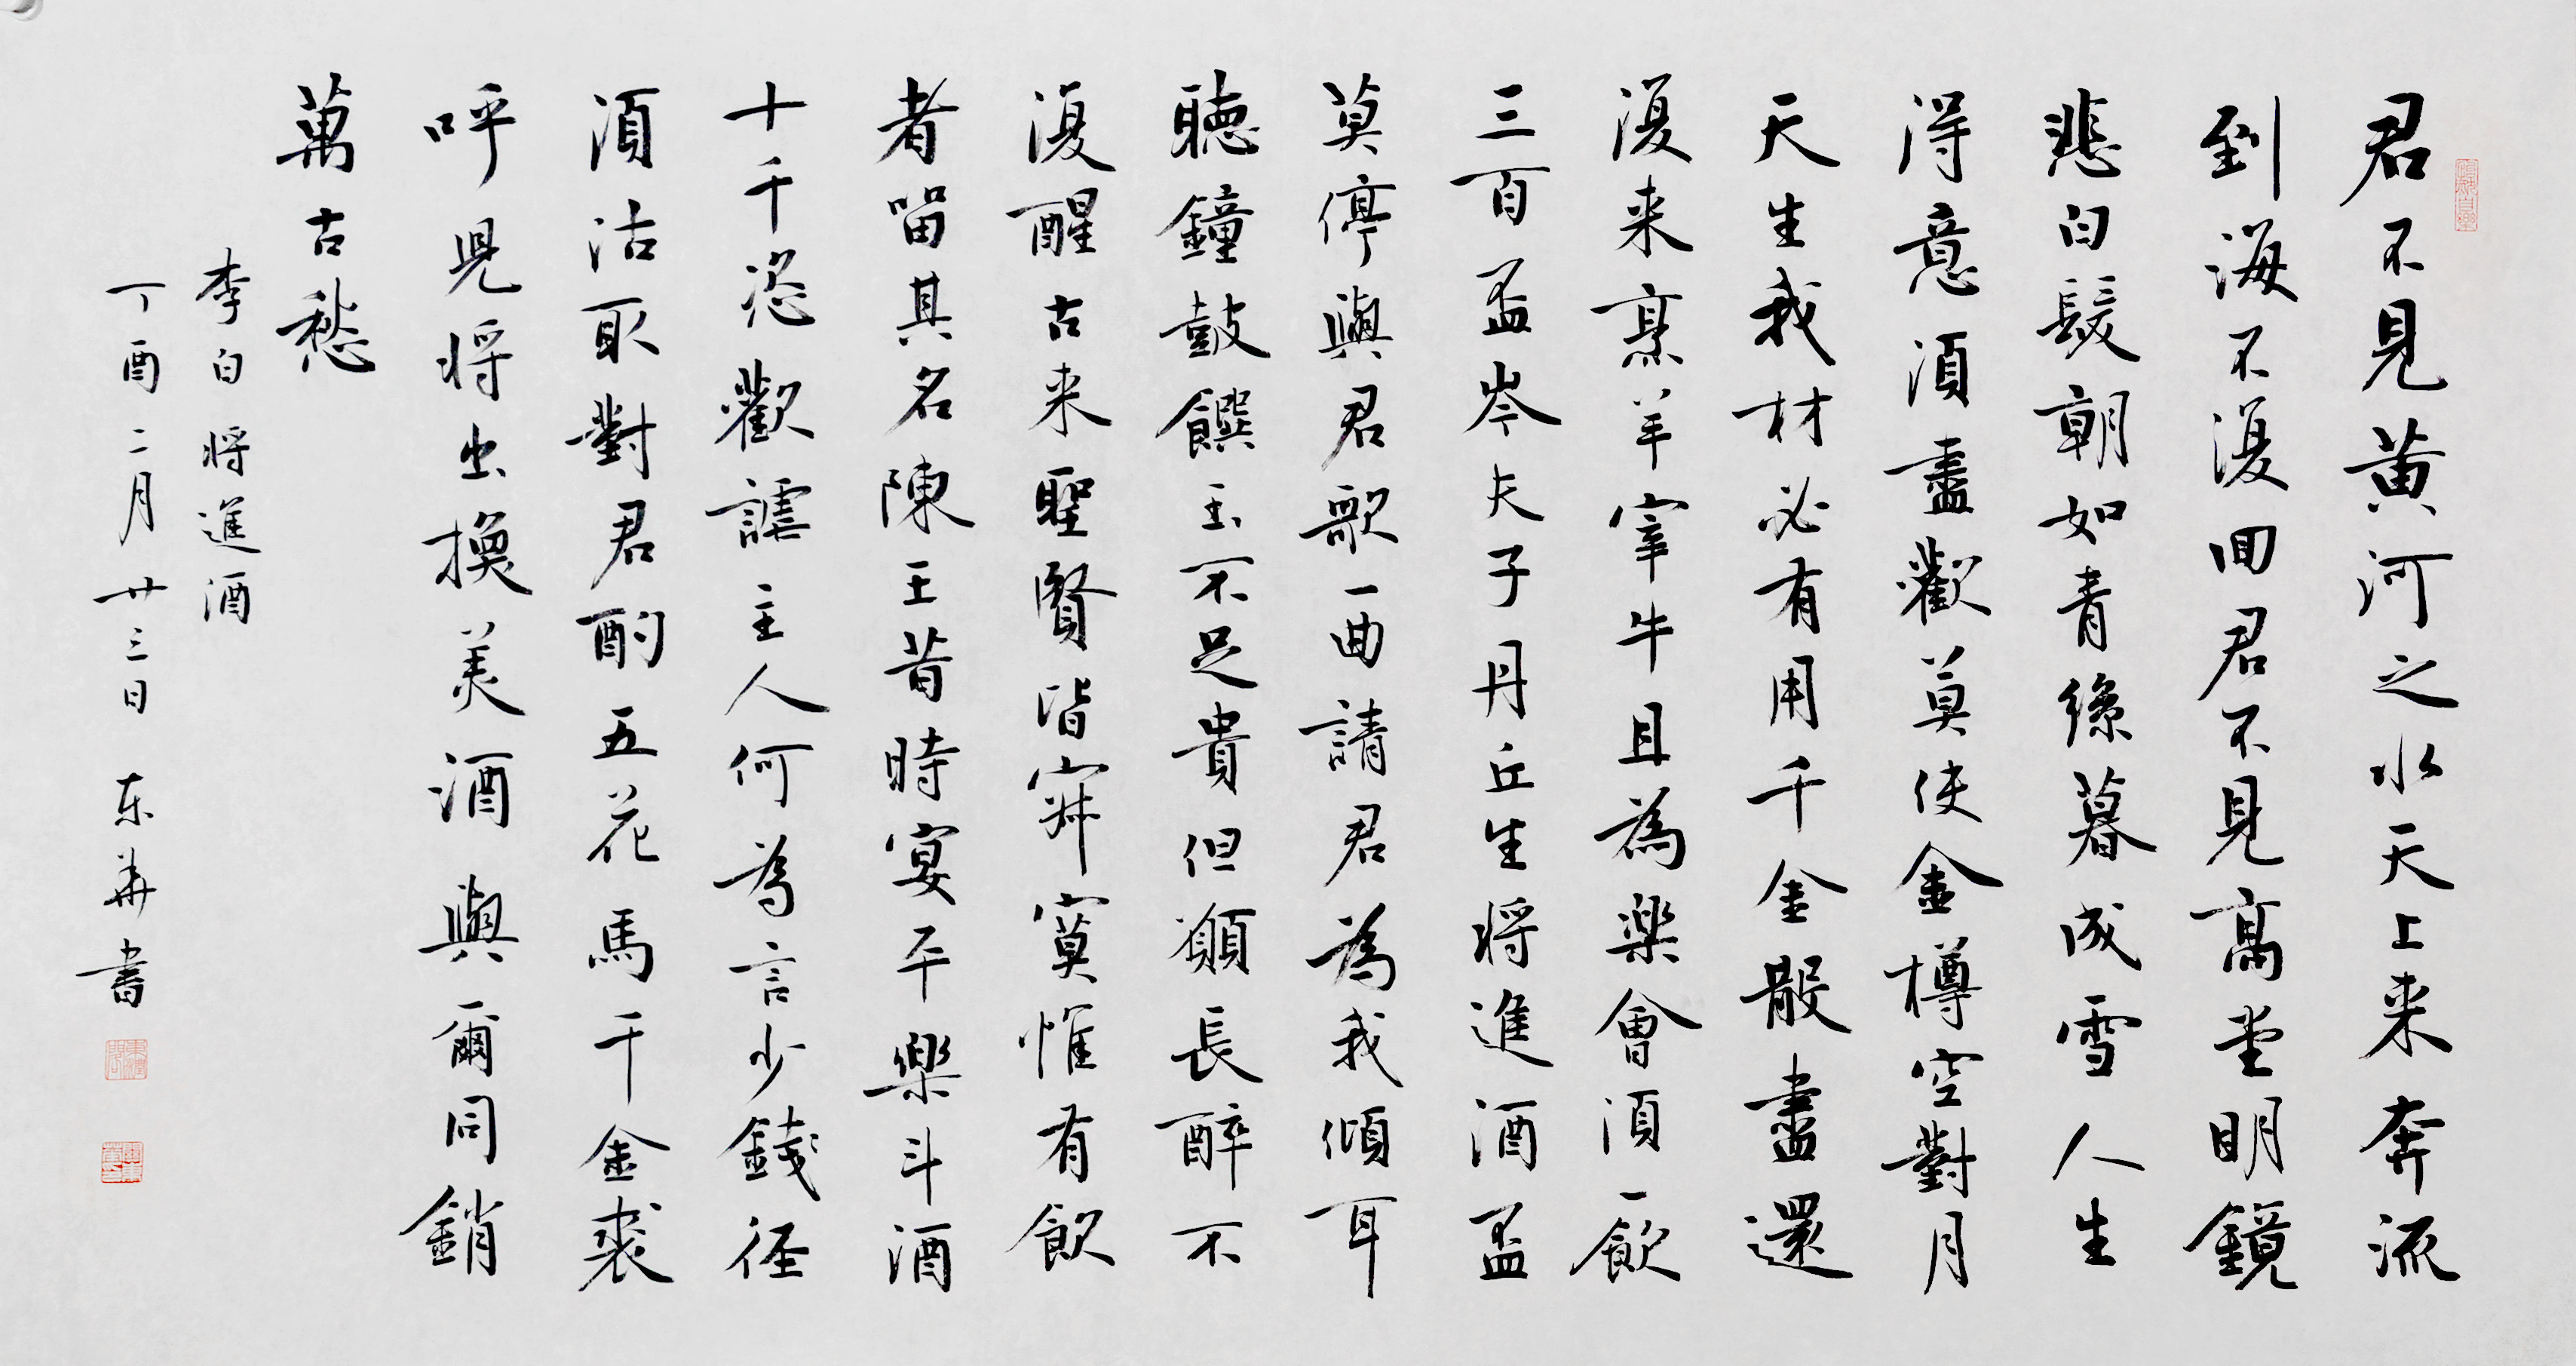 君不見黄河之水天上来奔流
到海不復回君不見高堂明鏡
悲白髮朝如青絲暮成雪人生
得意須盡歡莫使金樽空對月
天生我材必有用千金散盡還
復来烹羊宰牛且為樂會須一飲
三百盃岑夫子丹丘生将進酒盃
莫停與君歌一曲請君為我傾耳
聴鐘鼓饌玉不足貴但願長醉不
復醒古来聖賢皆寂寞惟有飲
者留其名陳王昔時宴平樂斗酒
十千恣歡謔主人何為言少錢径
須沽取對君酌五花馬千金裘
呼児将出換美酒與爾同銷
萬古愁
李白将進酒
丁酉二月廿三日 东華書